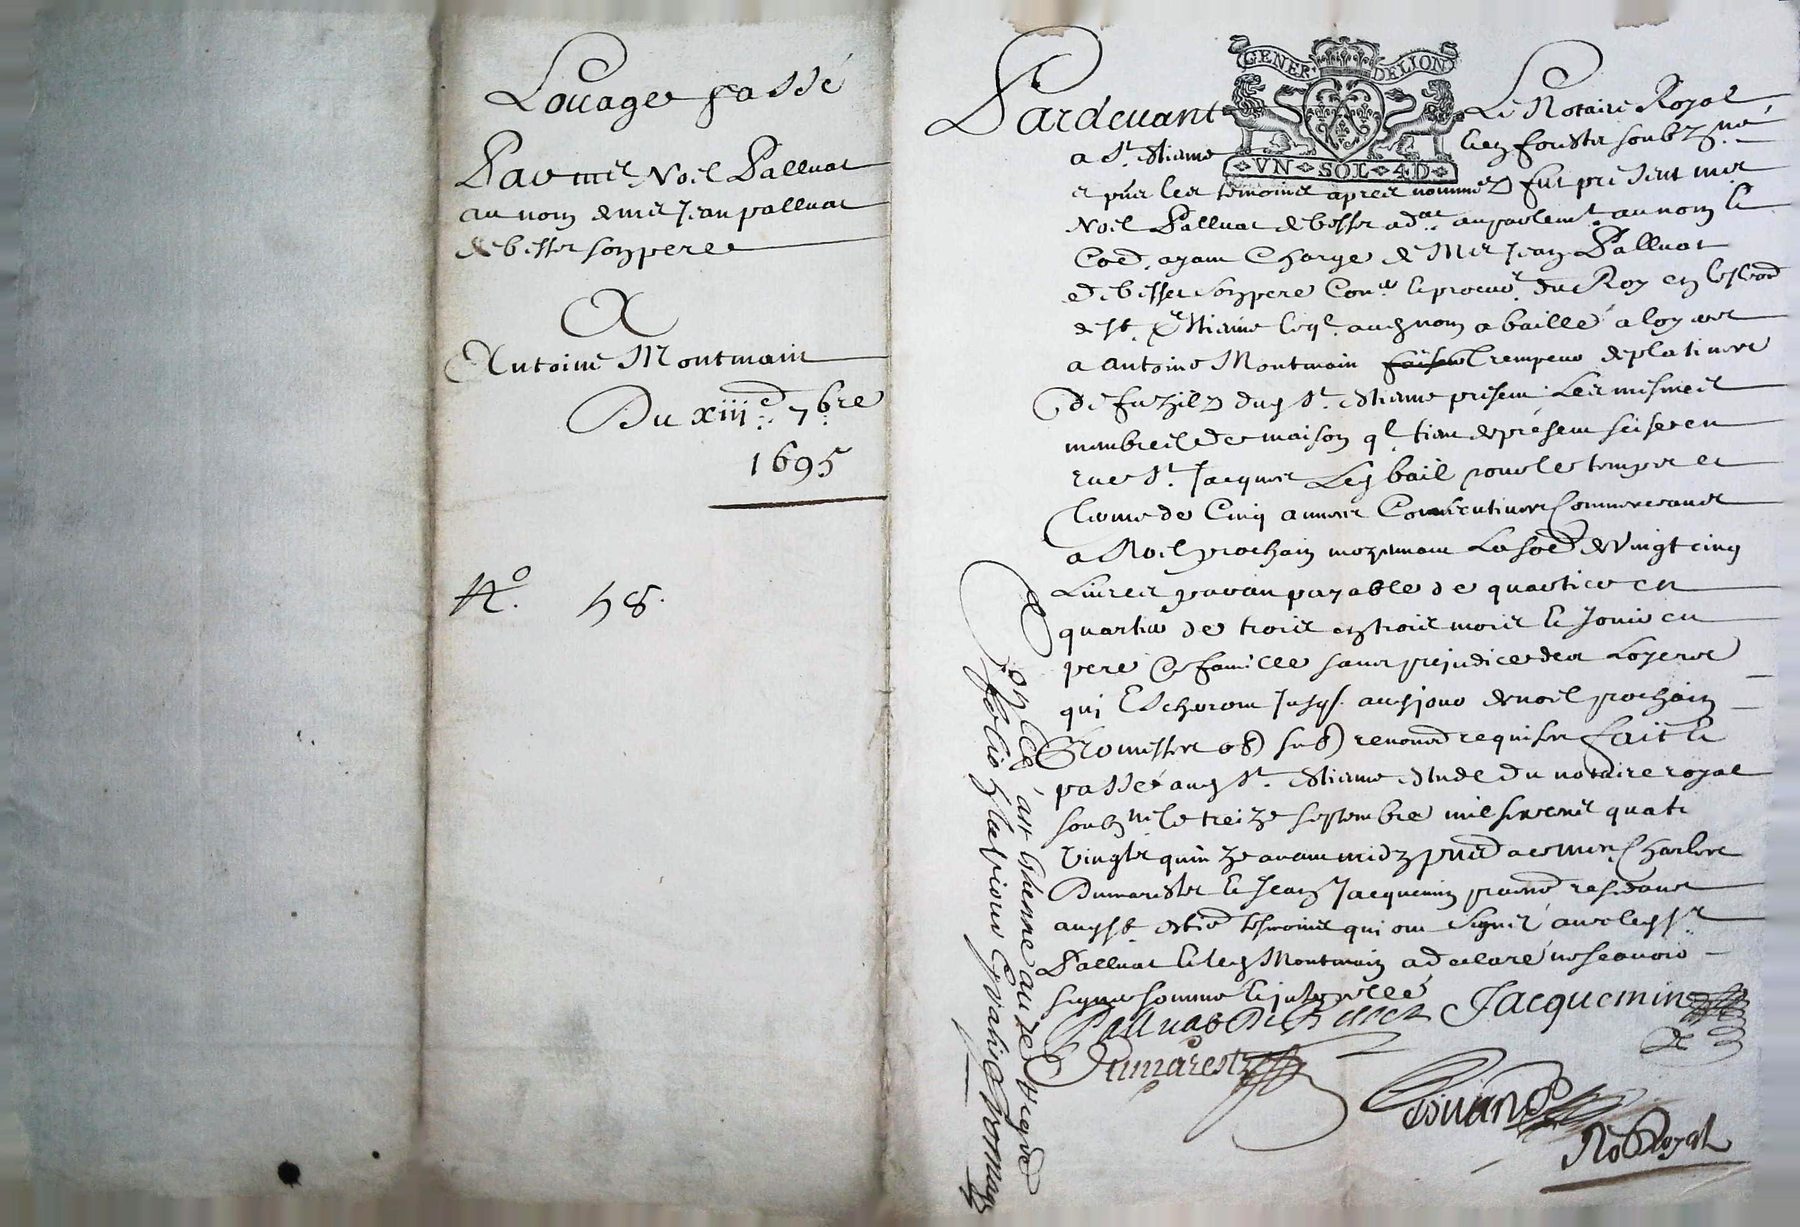 Louage passé
Par mre Noel Palluat
au nom de mre Jean palluat
de besset son pere
A
Antoine Montmain
Du xiije 7bre
1695
No. 58.
GENER. DELION
VN SOL 4D
Pardevant Le Notaire Royal
a St. Estienne soubzne
et pnts les temoins apres nommez fut present mre
Noel Palluat de besset adat au parlemt au nom et
Coe ayant Charge de Mre Jean Palluat
de besset son pere Coner et procur du Roy en
de St Estienne leql audnom a baillé a loyer
a antoine Montmain trempeur de platines
de fuzilz dud St. Estienne présent Les mesmes
membres de maison ql tient de présent scises en
rue St. Jacques Led bail pour le temps et
terme de Cinq années Consecutives Commenceant
a Noel prochain moyennant La so de Vingt cinq
Livres par an payable de quartier en
quartier de trois en trois mois et Jouir en
pere de famille sans prejudice des Loyers
qui Escherront Jusqs audjour de noel prochain
Promettes ob sub renond requises fait et
passé aud St. Estienne Estude du notaire royal
soubzné le treize septembre mil six cent quatre
Vingts quinze avant midy pnts a ce mre Charles
Dumarest et Jean Jacquemin residant
aud St Estienne tesmoins qui ont Signé avec led Sr
Palluat et led Montmain a declaré ne scavoir
signer somme et interpellé
Palluat De Besset Jacquemin
Dumarest
No Royal
Conllé a st ethienne au